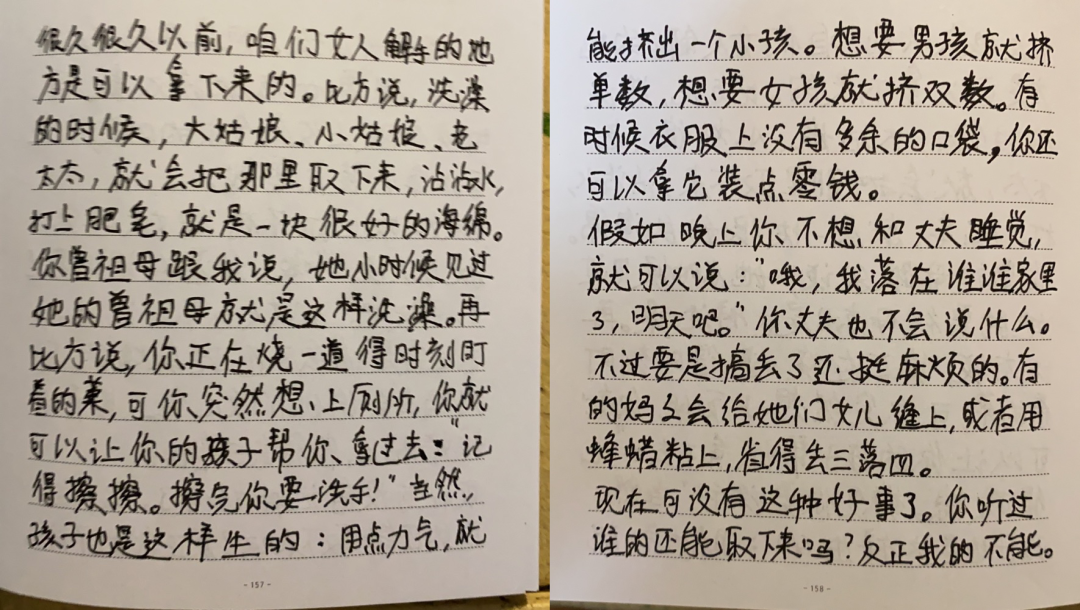 很久很久以前，咱们女人解手的地
方是可以拿下来的。比方说，洗澡
的时候，大姑娘、小姑娘、老
太太，就会把那里取下来，沾沾水，
打上肥皂，就是一块很好的海绵。
你曾祖母跟我说，她小时候见过
她的曾祖母就是这样洗澡。再
比方说，你正在烧一道得时刻盯
着的菜，可你突然想上厕所，你就
可以让你的孩子帮你拿过去：“记
得擦擦。擦完你要洗手！”当然，
孩子也是这样生的：用点力气，就
- 157 -
能挤出一个小孩。想要男孩就挤
单数，想要女孩就挤双数。有
时候衣服上没有多余的口袋，你还
可以拿它装点零钱。
假如晚上你不想和丈夫睡觉，
就可以说：“哦，我落在谁谁家里
了，明天吧。”你丈夫也不会说什么。
不过要是搞丢了还挺麻烦的。有
的妈妈会给她们女儿缝上，或者用
蜂蜡粘上，省得丢三落四。
现在可没有这种好事了。你听过
谁的还能取下来吗？反正我的不能。
- 158 -